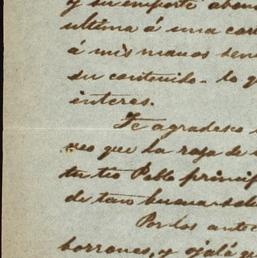 y su importe aban
ultima á una car
á mis manos sen
su contenido - lo q
interes.
Te agradesco
veo que la raja de
tu tio Pablo princip
de tan buena
Por los anteo
borrones, y ojalá q